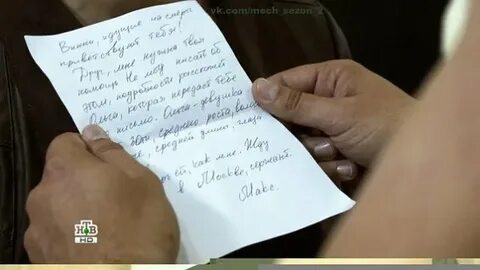 vk.com/mech_sezon_2
Винни, идущие на смерть
приветствуют тебя!
Друг, мне нужна твоя
помощь. Не могу писать об
этом, подробности расскажет
Ольга, которая передаст тебе
это письмо. Ольга - девушка
лет, среднего роста, волосы
, средней длины, глаза
ей, как мне. Жду
в Москве, сержант.
Макс.
НТВ
HD